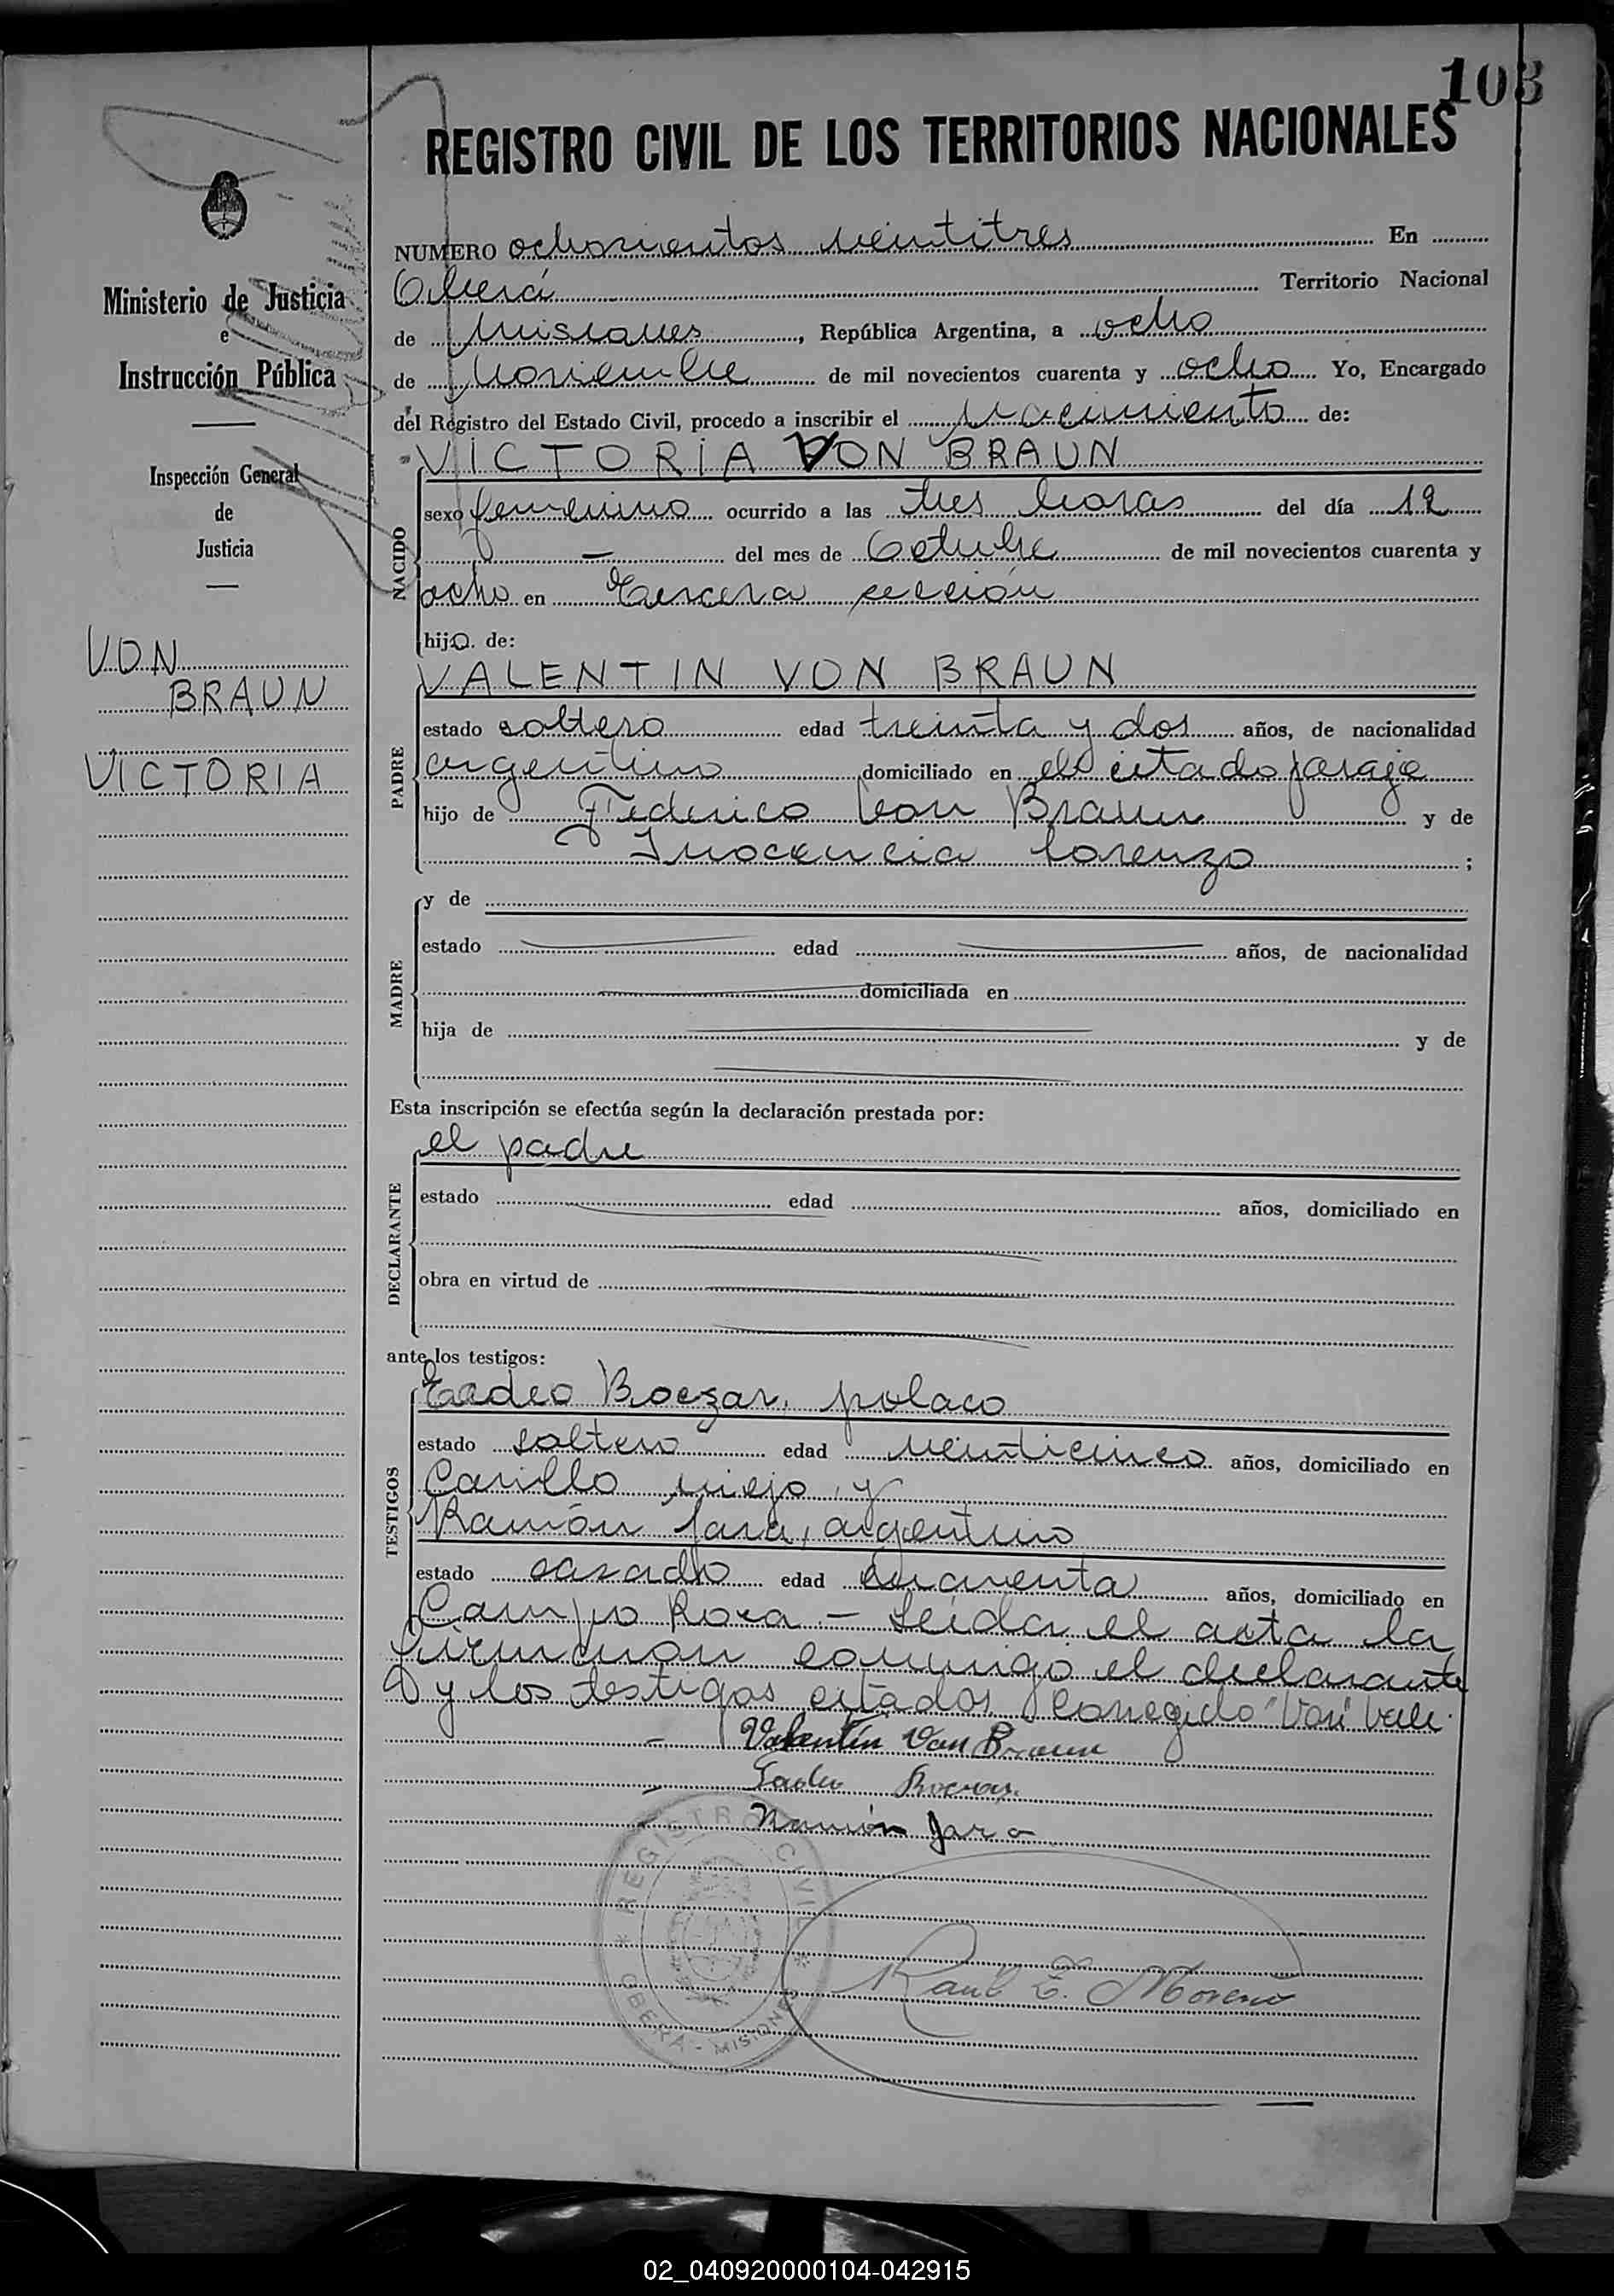 103
REGISTRO CIVIL DE LOS TERRITORIOS NACIONALES
NUMERO ochocientos veintitres En
Oberá Territorio Nacional
de Misiones, República Argentina, a ocho
de Noviembre de mil novecientos cuarenta y ocho Yo, Encargado
del Registro del Estado Civil, procedo a inscribir el nacimiento de:
VICTORIA VON BRAUN
NACIDO
sexo femenino ocurrido a las tres horas del día 12
— del mes de Octubre de mil novecientos cuarenta y
ocho en Tercera sección
hijo. de:
VALENTIN VON BRAUN
PADRE
estado soltero edad treinta y dos años, de nacionalidad
argentino domiciliado en el citado paraje
hijo de Federico Von Braun y de
Inocencia Lorenzo ;
MADRE
y de
estado edad años, de nacionalidad
domiciliada en
hija de y de
Esta inscripción se efectúa según la declaración prestada por:
el padre
DECLARANTE
estado edad años, domiciliado en
obra en virtud de
ante los testigos:
TESTIGOS
Tadeo Boczar, polaco
estado soltero edad veinticinco años, domiciliado en
Cerrillo viejo, y
Ramón Jara, argentino
estado casado edad cuarenta años, domiciliado en
Campo Roca — Leída el acta la
firmaron conmigo el declarante
y los testigos citados. Corregido "Von" Vale.
— Valentín Von Braun
— Tadeo Boczar
— Ramón Jara
REGISTRO CIVIL
* OBERA - MISIONES *
Raul E. Moreno
Ministerio de Justicia
e
Instrucción Pública
Inspección General
de
Justicia
VON
BRAUN
VICTORIA
02_040920000104-042915